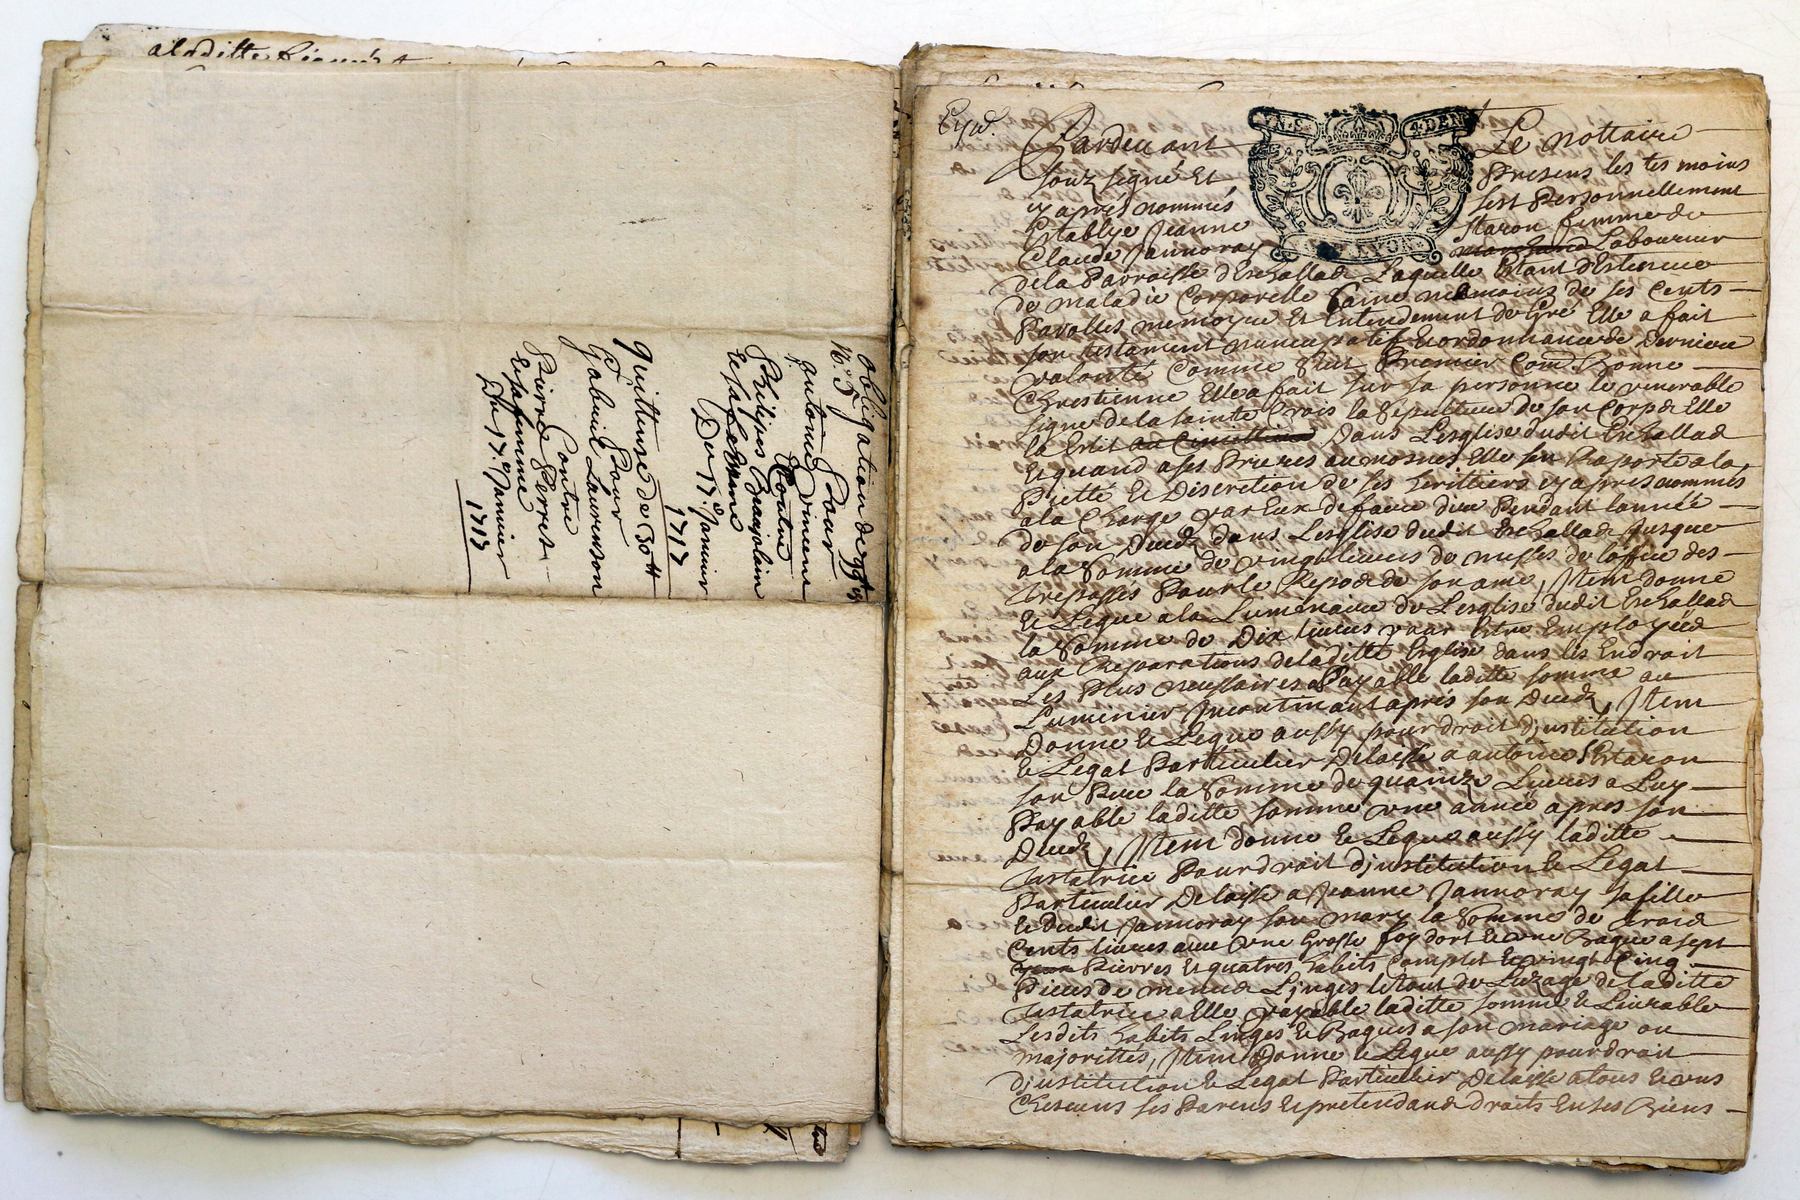 a laditte
obligation de 99 lt
N.º 3
Pour
antoine vincent
Contre
Philipes
Et sa femme
Du 17.e Janvier
1717
quittense de 30 lt
Pour
Gabriel Laurenson
Contre
Pierre Perret
Et sa femme
Du 17.e Janvier
1717
UN.S. 4.DEN
LYON
Pardevant Le nottaire
souz signé Et Presens les tesmoins
cy aprés nommés sest Personnellement
Establye Jeanne Staron femme de
Claude Jannoray Labourieur
de la Parroisse d'Eschallad Laquelle Estant detenue
de maladie Corporelle saine neamoins de ses Cents
Parolles memoyre Et Entendement de Gré Elle a fait
son testament nuncupatif Et ordonnance de Derniere
volonté Comme suit Premier Comē Bonne
Chrestienne Elle a fait sur sa personne le venerable
signe de la sainte Crois la sepulture de son Corps Elle
la Eslit Dans Lesglise dudit Eschallad
Et quand a ses Prieres aumosnes Elle sen Raporte a la
Pietté Et Discretion de ses heritiers cy apres nommés
a la Charge par Eux de faire dire Pendant lannée
de son Deced dans Lesglise dudit Eschallad Jusque
a la Somme de vingt livres de messes de loffice des
trepasses Pour le Repos de son ame, Item donne
Et Legue a la Luminaire de Lesglise dudit Eschallad
la Somme de Dix livres pour Estre Employéed
aux Reparations de laditte Esglise dans les Endroit
Les Plus necessaires Payable laditte somme au
Luminier Incontinant aprés son Deced, Item
Donne Et Legue aussy pour droit djnstitution
Et Legat Particulier Delaisse a antoine Staron
son Pere la Somme de quainze Livres a Luy
Payable laditte somme une année apres son
Deced, Item donne Et Legue aussy laditte
testatrice Pour droit djnstitution Et Legat
Particulier Delaisse a Jeanne Jannoray sa fille
Et dudit Jannoray son mary la Somme de troid
Cents livres avec une Grosse foy dort Et une Bague a sept
Pierres Et quatres habits Complet Et vingt Cinq
Pieces de menue Linges le tout de Luzage de laditte
testatrice a Elle payable laditte somme Et Livrable
Lesdits habits Linges Et Bagues a son mariage ou
majorittés, Item Donne Et Legue aussy pour droit
djnstitution Et Legat Particulier Delaisse a tous Et uns
Chescuns ses Parens Et pretendand droits En ses Biens